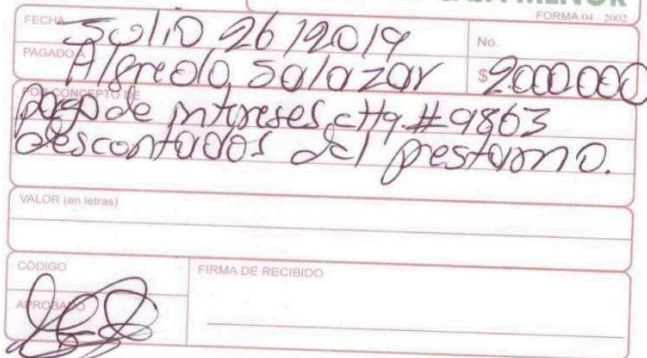 MENOR
FORMA 04 - 2002
FECHA Julio 26/2019 No.
PAGADO A Alfredo Salazar $2.000.000
POR CONCEPTO DE
pago de intereses chq. #9863
descontados del prestamo.
VALOR (en letras)
CÓDIGO FIRMA DE RECIBIDO
APROBADO